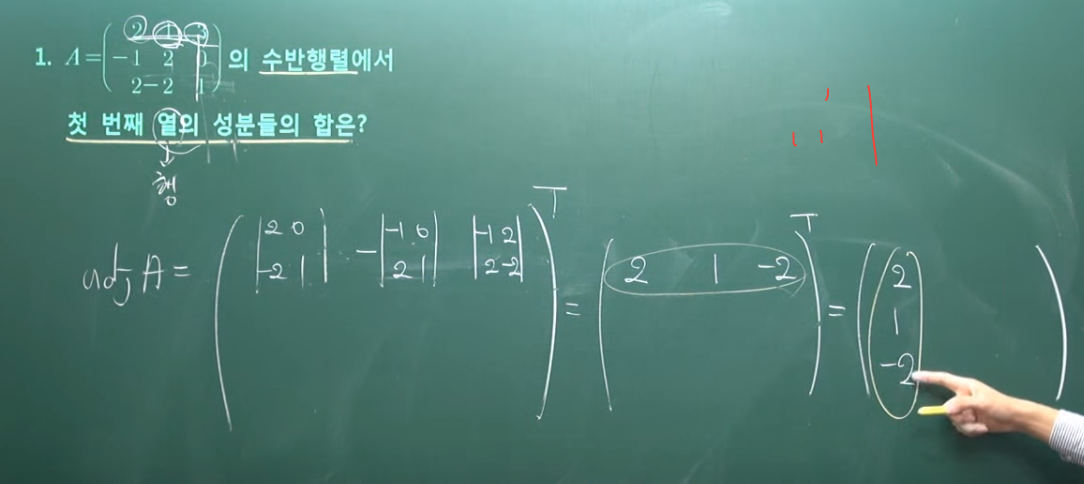 1. A = ( 2 1 3
-1 2 0
2 -2 1 ) 의 수반행렬에서
첫 번째 열의 성분들의 합은?
↓
행
adj A = ( |2 0 / -2 1| -|-1 0 / 2 1| |-1 2 / 2 -2| )ᵀ = ( 2 1 -2 )ᵀ = ( 2
1
-2 )